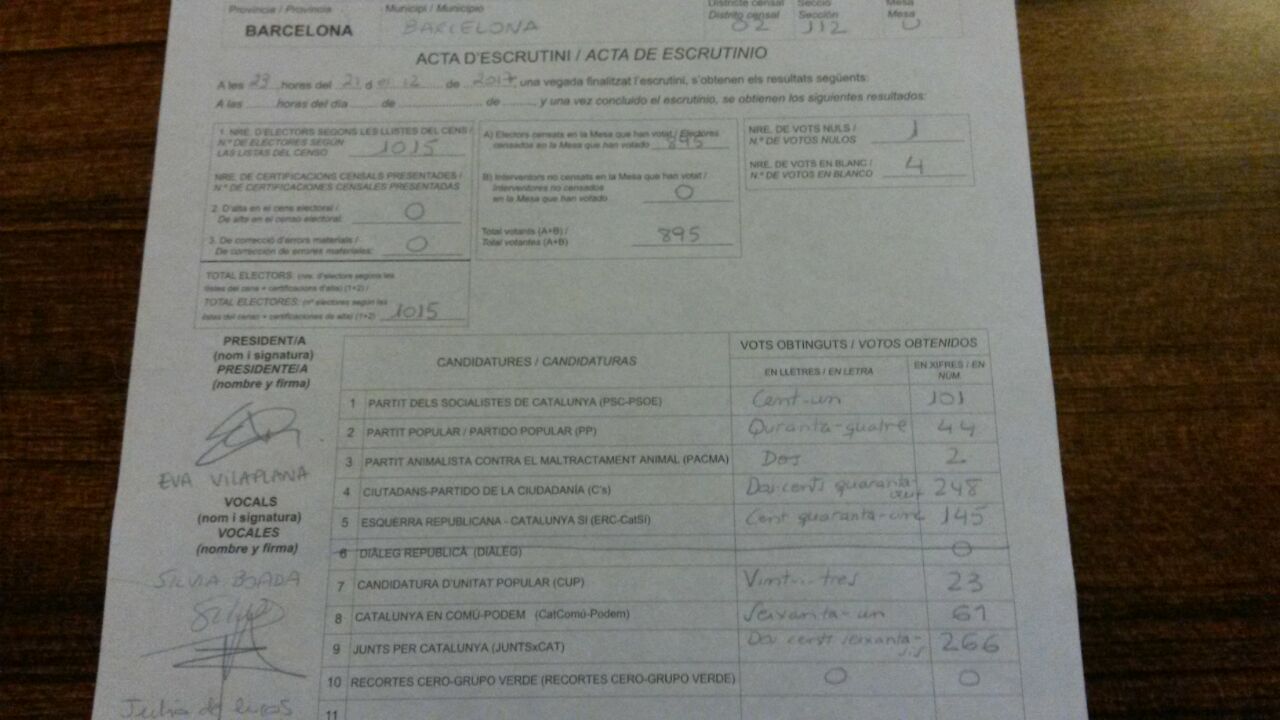 Província / Provincia Municipi / Municipio Districte censal Secció Mesa
Distrito censal Sección Mesa
BARCELONA BARCELONA 02 112 U
ACTA D'ESCRUTINI / ACTA DE ESCRUTINIO
A les 23 hores del 21 d 12 de 2017 una vegada finalitzat l'escrutini, s'obtenen els resultats següents:
A las horas del día de de , y una vez concluido el escrutinio, se obtienen los siguientes resultados:
1. NRE. D'ELECTORS SEGONS LES LLISTES DEL CENS /
N.º DE ELECTORES SEGÚN
LAS LISTAS DEL CENSO 1015
NRE. DE CERTIFICACIONS CENSALS PRESENTADES /
N.º DE CERTIFICACIONES CENSALES PRESENTADAS
2. D'alta en el cens electoral /
De alta en el censo electoral: 0
3. De correcció d'errors materials /
De corrección de errores materiales: 0
TOTAL ELECTORS: (nre. d'electors segons les
llistes del cens + certificacions d'alta) (1+2) /
TOTAL ELECTORES: (nº electores según las
listas del censo + certificaciones de alta) (1+2) 1015
A) Electors censats en la Mesa que han votat / Electores
censados en la Mesa que han votado 895
B) Interventors no censats en la Mesa que han votat /
Interventores no censados
en la Mesa que han votado 0
Total votants (A+B) /
Total votantes (A+B) 895
NRE. DE VOTS NULS /
N.º DE VOTOS NULOS 1
NRE. DE VOTS EN BLANC /
N.º DE VOTOS EN BLANCO 4
PRESIDENT/A
(nom i signatura)
PRESIDENTE/A
(nombre y firma)
EVA VILAPLANA
VOCALS
(nom i signatura)
VOCALES
(nombre y firma)
SILVIA BOADA
Julia de
CANDIDATURES / CANDIDATURAS VOTS OBTINGUTS / VOTOS OBTENIDOS
EN LLETRES / EN LETRA EN XIFRES / EN NÚM.
1 PARTIT DELS SOCIALISTES DE CATALUNYA (PSC-PSOE) Cent-un 101
2 PARTIT POPULAR / PARTIDO POPULAR (PP) Quranta-quatre 44
3 PARTIT ANIMALISTA CONTRA EL MALTRACTAMENT ANIMAL (PACMA) Dos 2
4 CIUTADANS-PARTIDO DE LA CIUDADANÍA (C's) Dos-cents quaranta-vuit 248
5 ESQUERRA REPUBLICANA - CATALUNYA SÍ (ERC-CatSí) Cent quaranta-cinc 145
6 DIÀLEG REPUBLICÀ (DIÀLEG) 0
7 CANDIDATURA D'UNITAT POPULAR (CUP) Vint-i-tres 23
8 CATALUNYA EN COMÚ-PODEM (CatComú-Podem) Seixanta-un 61
9 JUNTS PER CATALUNYA (JUNTSxCAT) Dos cents seixanta-sis 266
10 RECORTES CERO-GRUPO VERDE (RECORTES CERO-GRUPO VERDE) 0 0
11